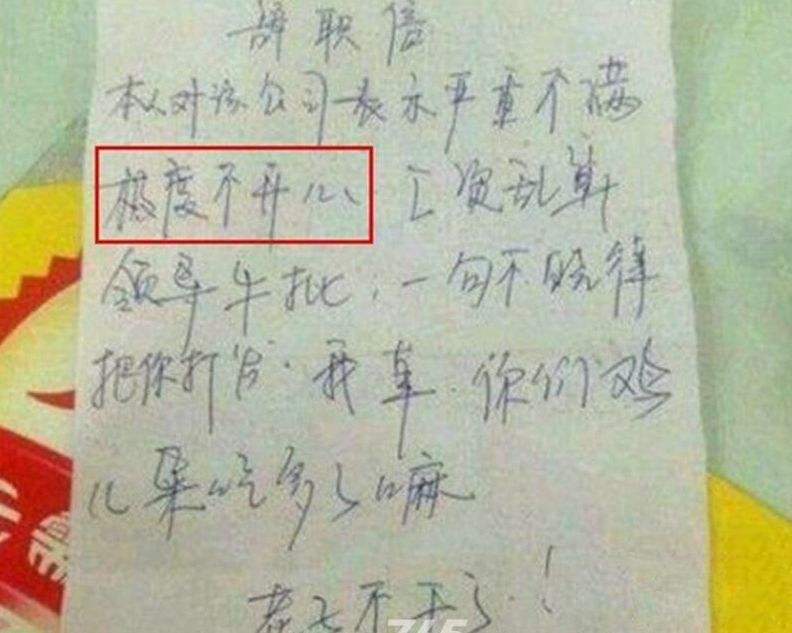 辞职信
本人对该公司表示严重不满
极度不开心 工资乱算
领导牛批,一句不晓得
把你打发.我草.你们鸡
儿屎吃多了嘛
老子不干了.!